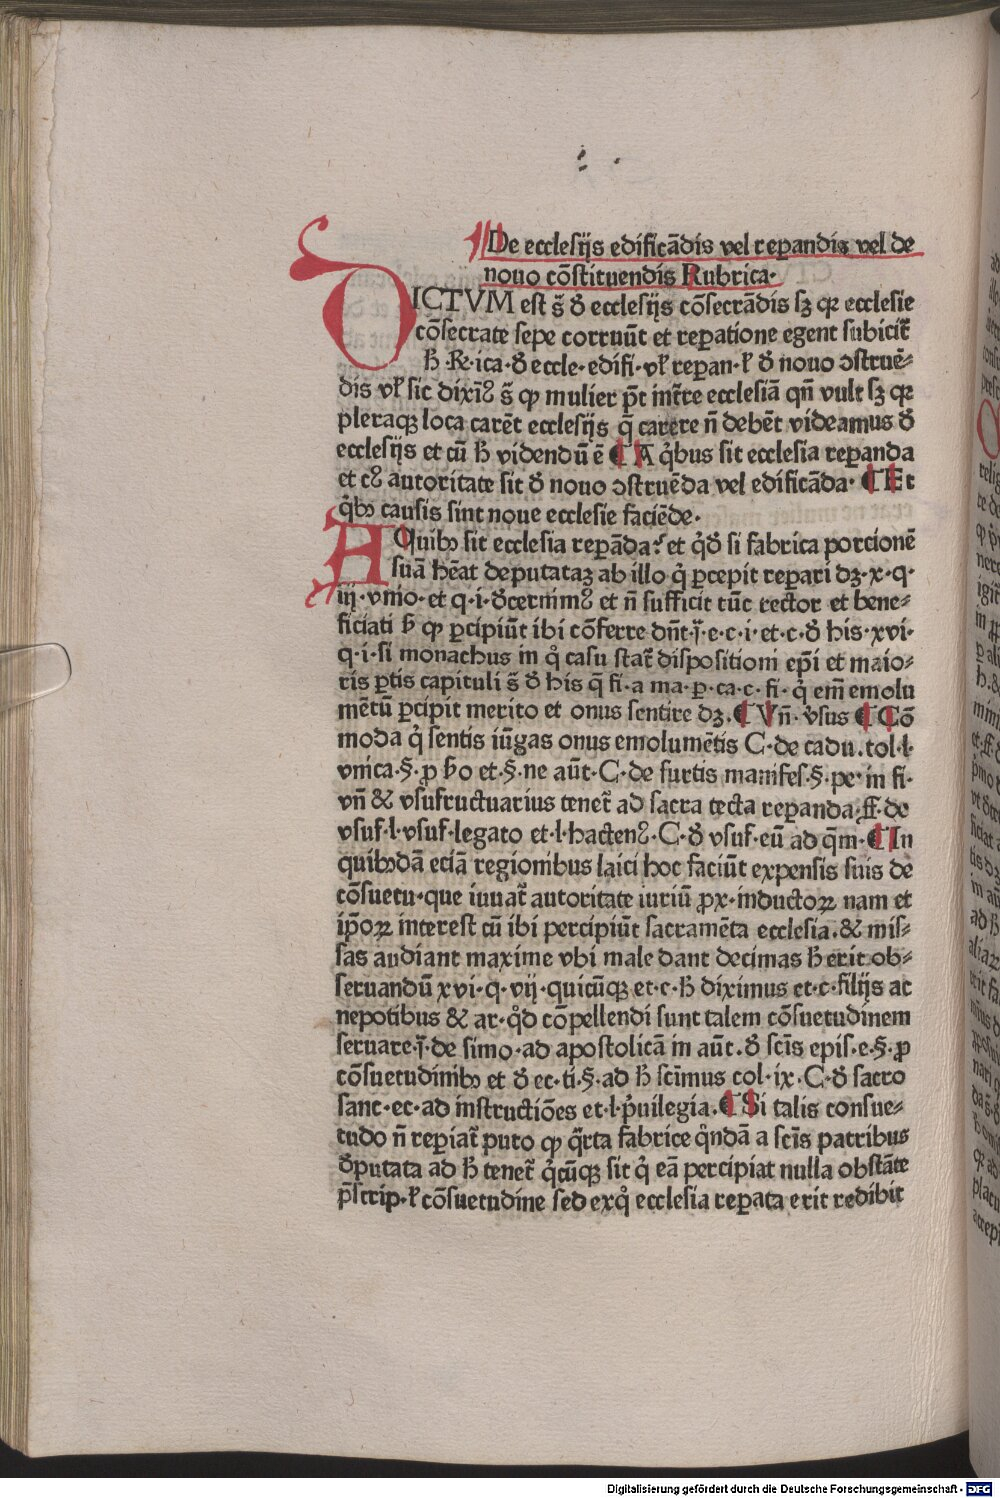 De ecclesijs edificādis vel rep̄andis vel de
nouo cōstituendis Rubrica·
DICTVM est s̄ ď ecclesijs cōsecrādis sꝫ qꝛ ecclesie
cōsecrate sepe corruūt et rep̄atione egent subicit̄
h̄ ·R·ica·ď eccle·edifi·vƚ rep̄an·ƚ ď nouo ɔstruē⸗
dis vƚ sic dixiꝰ s̄ ꝙ mulier p̄t int̄re ecclesiā qn̄ vult sꝫ qꝛ
pleraqꝫ loca carēt ecclesijs q̄ carere n̄ debēt videamus ď
ecclesijs et cū h̄ videndū ē ¶ A q̇bus sit ecclesia rep̄anda
et cꝰ autoritate sit ď nouo ɔstruēda vel edificāda· ¶ Et
q̇bꝫ causis sint noue ecclesie faciēde·
A Quibꝫ sit ecclesia rep̄āda? et q̇ď si fabrica porcionē
suā h̄eat deputataꝫ ab illo q̇ ꝑcepit repari dꝫ·x·q·
iij·vnio·et q·i·ďcernimꝰ et n̄ sufficit tūc rector et bene⸗
ficiati h̄ ꝙ ꝑcipiūt ibi cōferre dn̄t·j̄·e·c·i·et·c·ď his·xvi·
q·i·si monachus in q̇ casu stat̄ dispositioni ep̄i et maio⸗
ris ꝑtis capituli s̄ ď his q̄ fi·a ma·ꝑ·ca·c·fi·q̇ em̄ emolu
mētū ꝑcipit merito et onus sentire dꝫ. ¶ Vn̄·v̇sus ¶ Cō
moda q̇ sentis iūgas onus emolumētis C·de cadu.tol·l·
vnica·§·ꝓ h̄o et·§·ne aūt·C·de furtis manifes·§·pe·in fi·
vn̄ & vsufructuarius tenet̄ ad sacra tecta rep̄anda·ff·de
vsuf·l·vsuf·legato et·l·hactenꝰ·C·ď vsuf·eū ad q̄m· ¶ In
quibꝫdā eciā regionibus laici hoc faciūt expensis suis de
cōsuetu·que iuuat̄ autoritate iuriū ꝓx·inductoꝝ nam et
ip̄oꝝ interest cū ibi percipiūt sacramēta ecclesia.& mis⸗
sas audiant maxime vbi male dant decimas h̄ erit ob⸗
seruandū xvi·q·vij·quicūqꝫ et·c·h̄ diximus et·c·filijs ac
nepotibus & ar·q̇d cōpellendi sunt talem cōsuetudinem
seruare·j̄·de simo·ad apostolicā in aūt.ď scīs epis·e·§·ꝓ
cōsuetudinibꝫ et ď ec·ti·§·ad h̄ scīmus col·ix·C·ď sacro
sanc·ec·ad instructiōes et·l·p̄uilegia. ¶ Si talis consue⸗
tudo n̄ rep̄iat̄ puto ꝙ q̄rta fabrice q̇ndā a scīs patribus
ďputata ad h̄ tenet̄ q̇cūqꝫ sit q̇ eā percipiat nulla obstāte
p̄scrip·ƚ cōsuetudine sed exq̇ ecclesia rep̄ata erit redibit
Digitalisierung gefördert durch die Deutsche Forschungsgemeinschaft · DFG